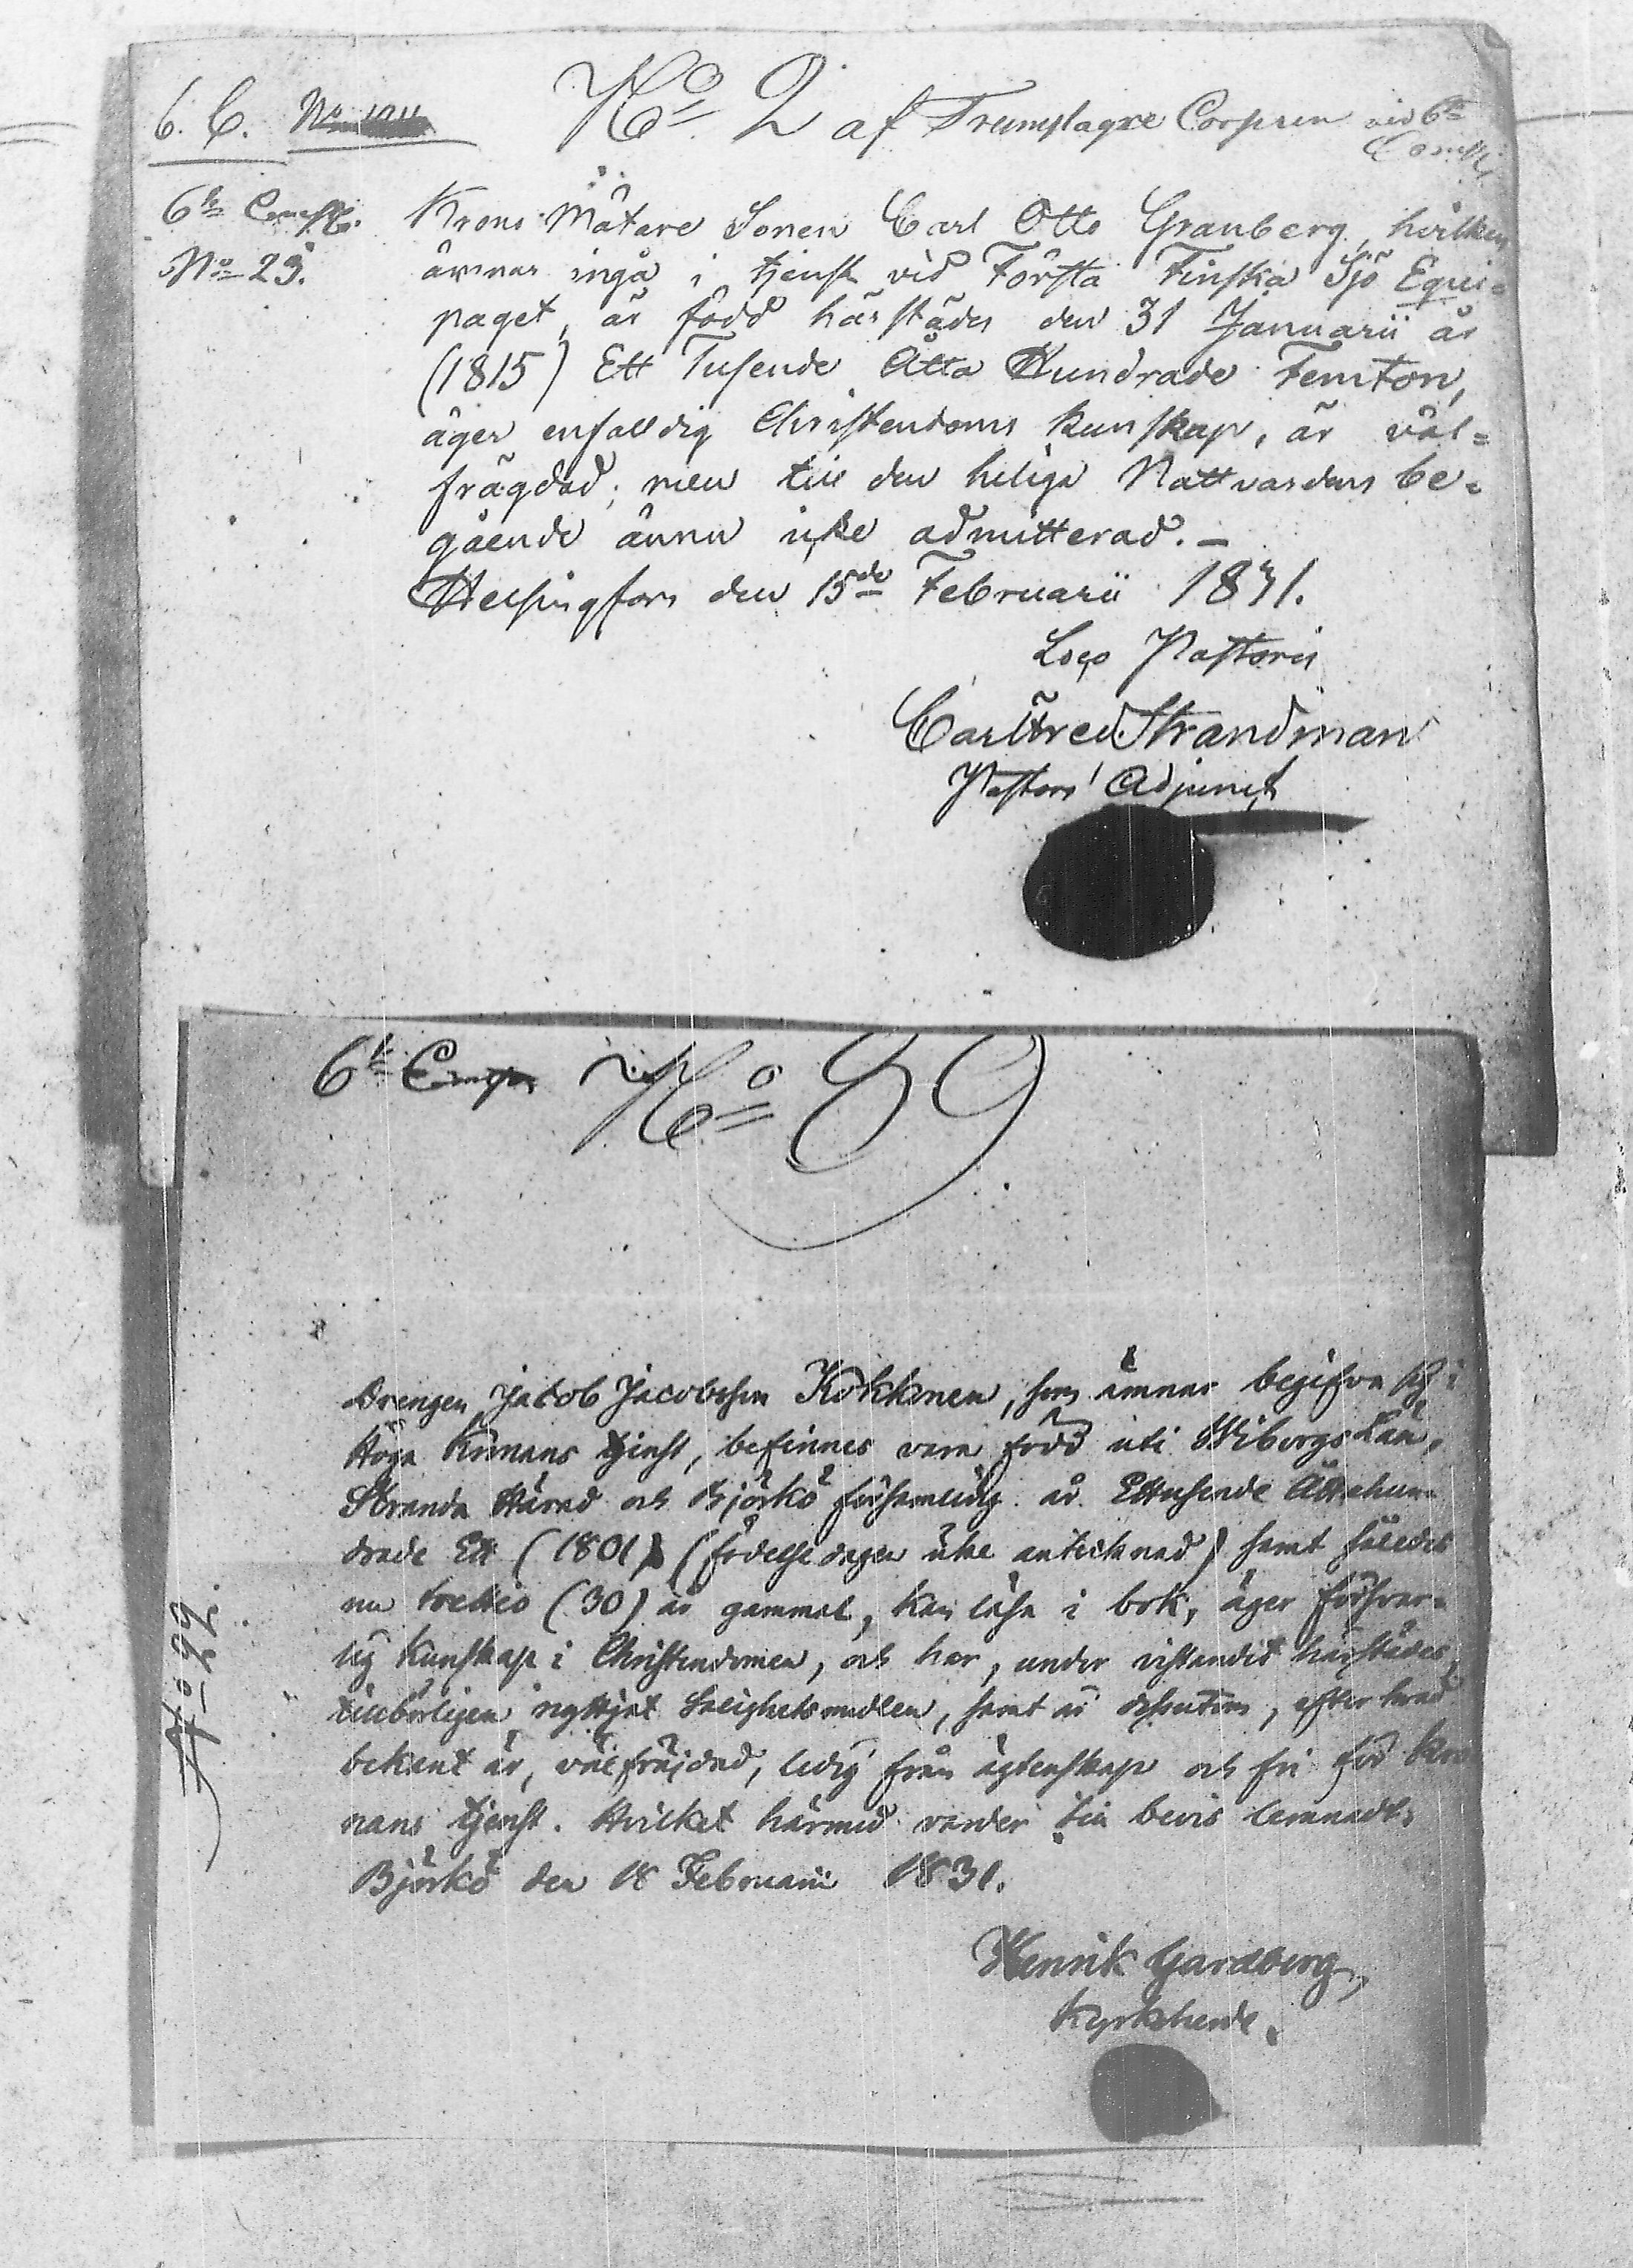 6. C. No
No 2 af Trumslagare Corpsen vid 6te
Comp.
6te Comp.
No 29.
Krono Mätare Sonen Carl Otto Granberg, hvilken
ämnar ingå i tjenst vid Första Finska Sjö Equi-
paget, är född härstädes den 31 Januarii år
(1815) Ett Tusende Åtta Hundrade Femton,
äger enfalldig Christendoms kunskap, är väl-
frägdad; men till den heliga Nattvardens be-
gående ännu icke admitterad. –
Helsingfors den 15de Februarii 1831.
Loco Pastoris
Carl Fred. Strandman
Pastors Adjunct
6te Comp. No 59
Drengen Jacob Jacobsson Kokkonen, som ämnar begifva sig i
Höga Kronans tjenst, befinnes vara född uti Wiborgs Län,
Stranda Härad och Björkö församling år Ettusende Åttahun-
drade Ett (1801) (födelsedagen icke antecknad) samt således
nu trettio (30) år gammal, kan läsa i bok, äger försvar-
lig kunskap i Christendomen, och har, under vistandet härstädes
tillbörligen nyttjat Salighetsmedlen, samt är dessutom, efter hvad
bekant är, välfräjdad, ledig från ägtenskap och fri för Kro-
nans tjenst. Hvilket härmed varder till bevis lemnadt.
Björkö den 18 Februarii 1831.
Henrik Gardberg,
Kyrkoherde.
No 22.